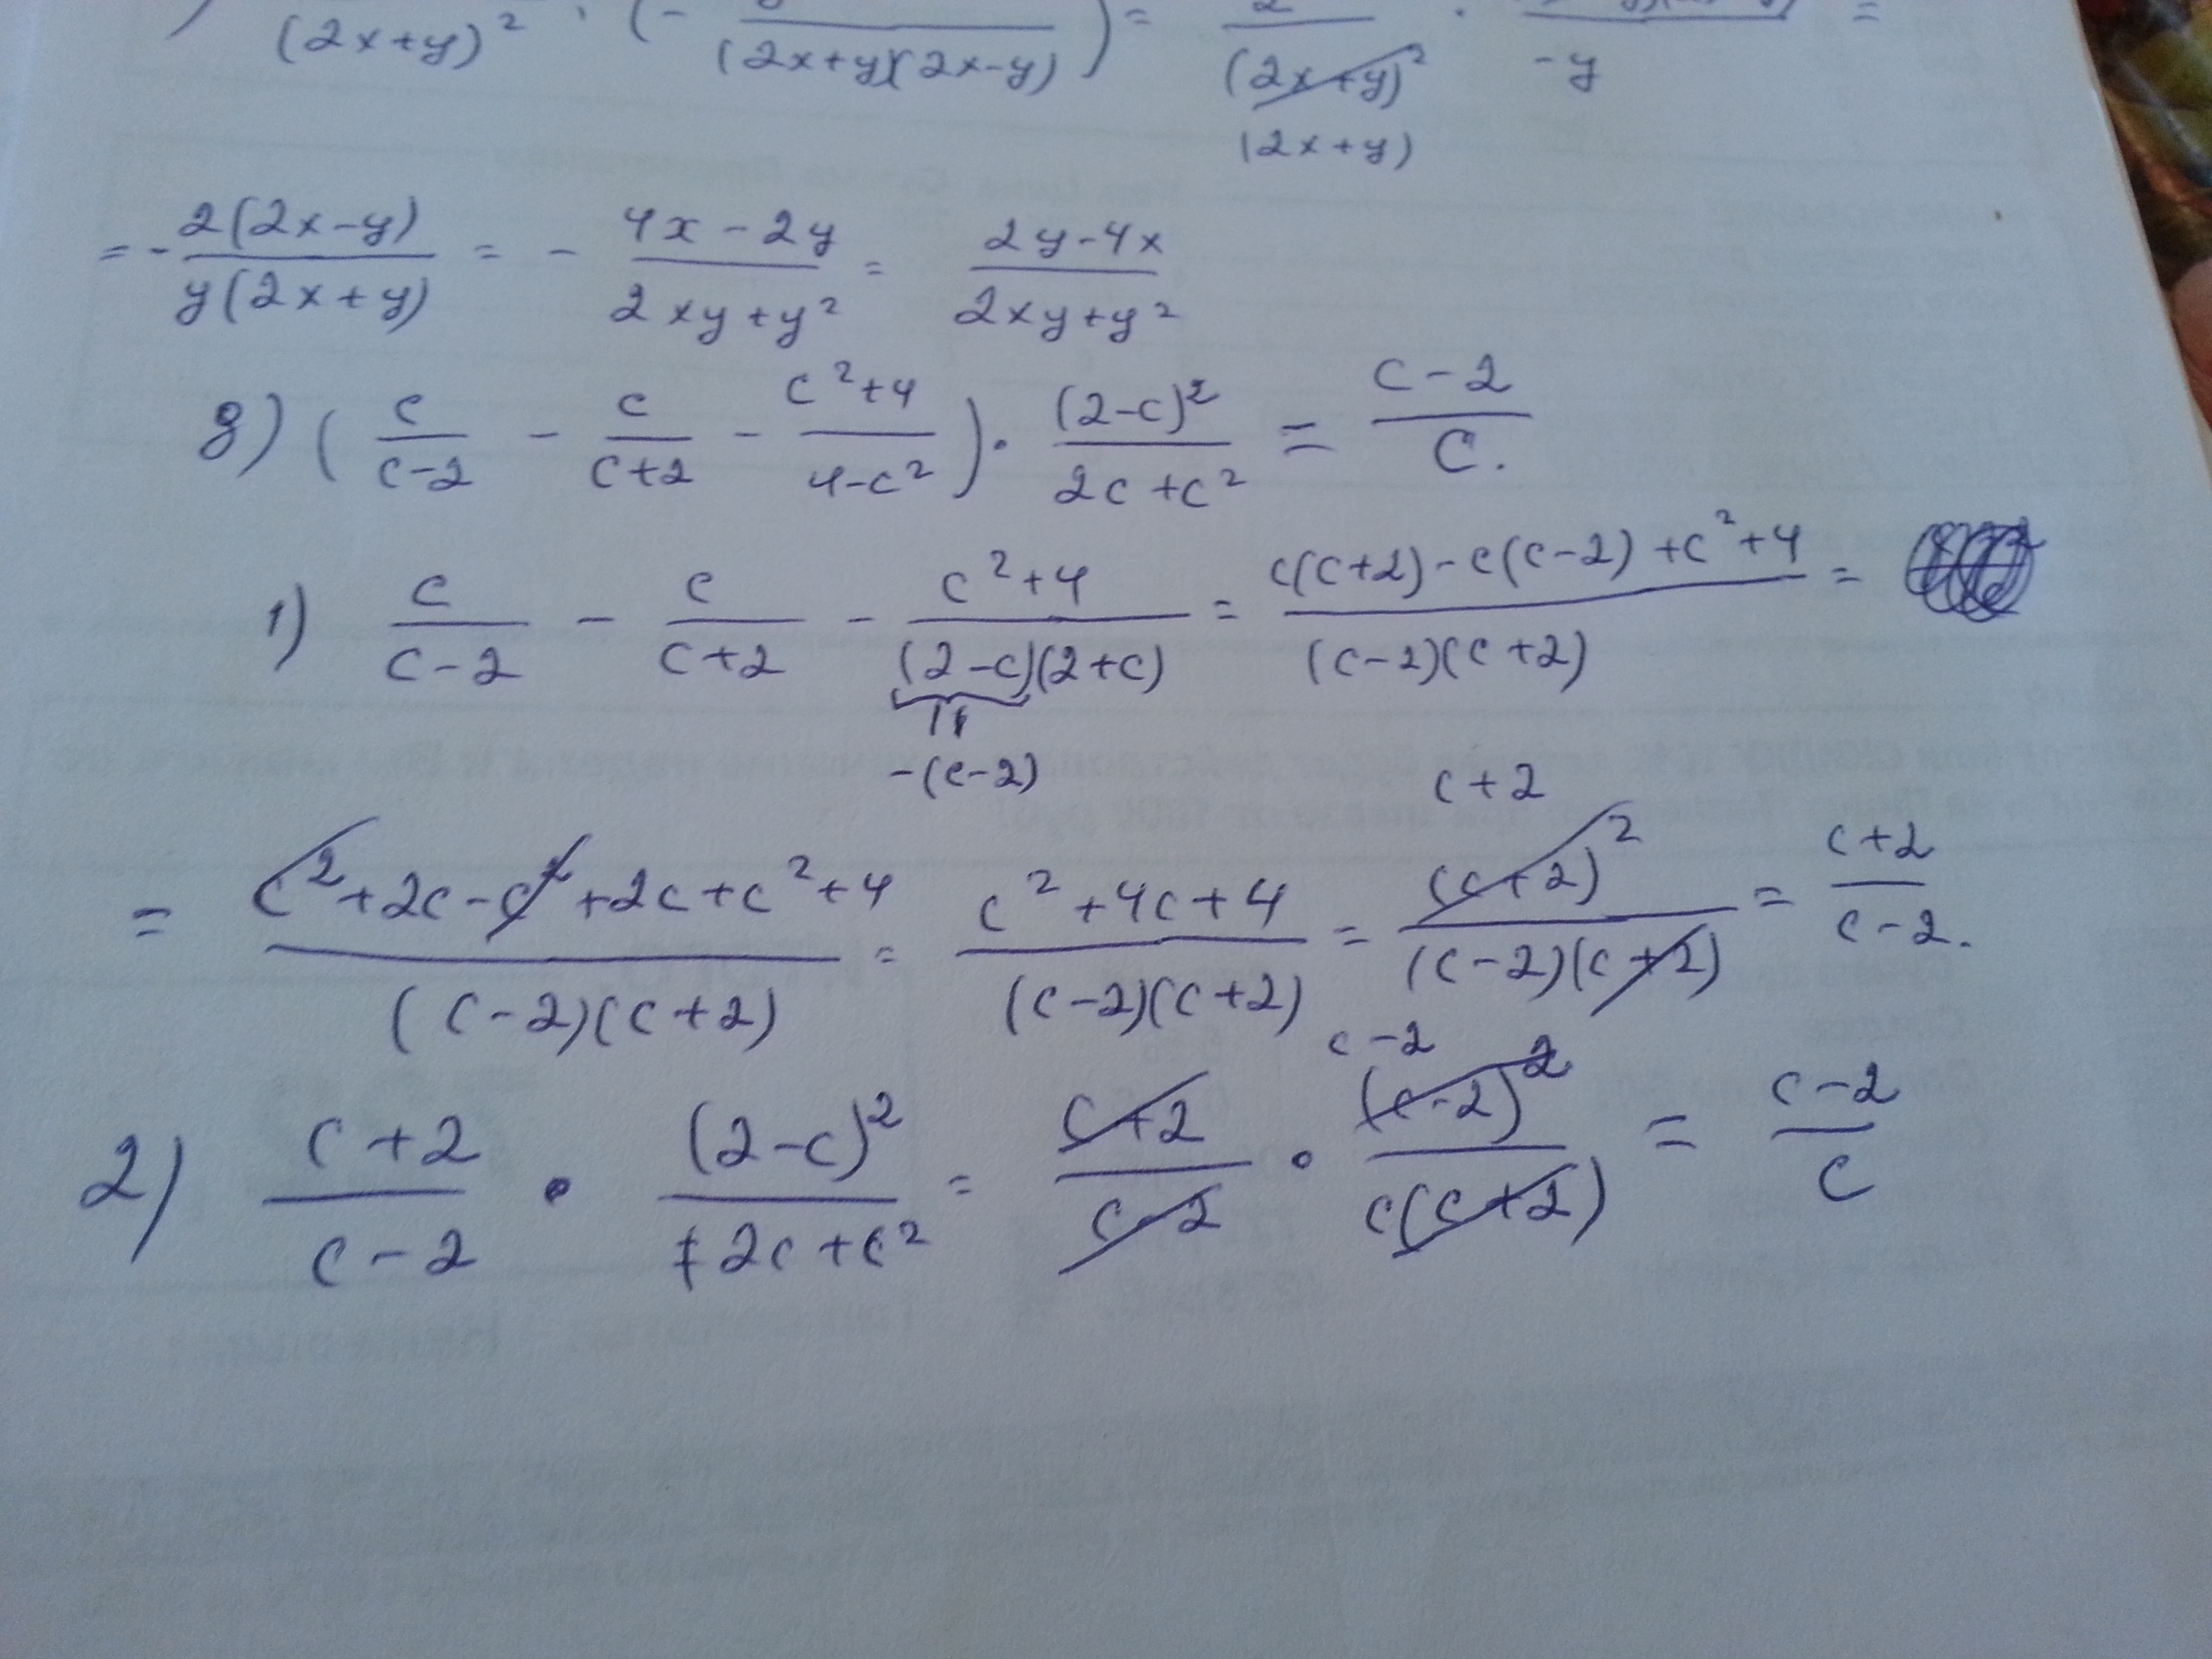 (2x+y)² · (- (2x+y)(2x-y)) = 2/(2x+y)² · /-y =
(2x+y)
= - 2(2x-y)/y(2x+y) = - 4x-2y/2xy+y² = 2y-4x/2xy+y²
8) (c/c-2 - c/c+2 - c²+4/4-c²) · (2-c)²/2c+c² = c-2/c.
1) c/c-2 - c/c+2 - c²+4/(2-c)(2+c) = c(c+2)-c(c-2)+c²+4/(c-2)(c+2) =
-(c-2)
c+2
= c²+2c-c²+2c+c²+4/(c-2)(c+2) = c²+4c+4/(c-2)(c+2) = (c+2)²/(c-2)(c+2) = c+2/c-2.
c-2
2) c+2/c-2 · (2-c)²/+2c+c² = c+2/c-2 · (c-2)²/c(c+2) = c-2/c